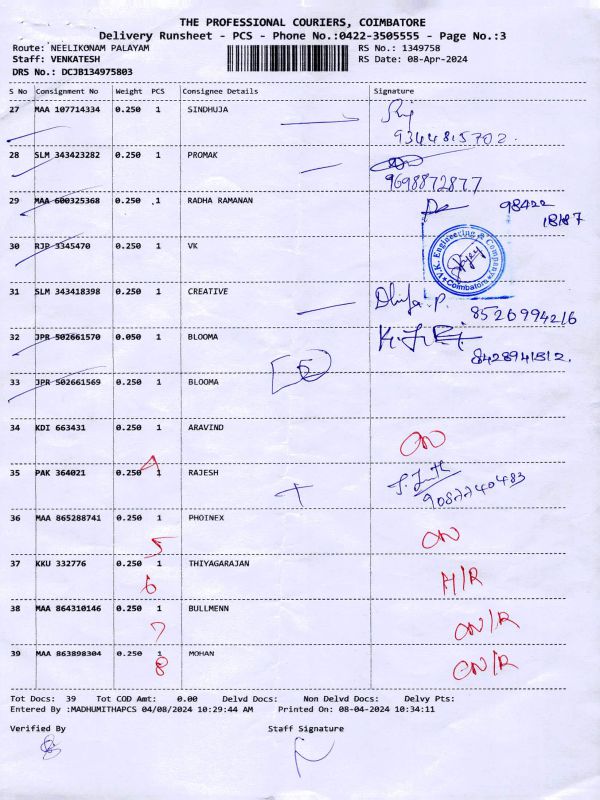 THE PROFESSIONAL COURIERS, COIMBATORE
Delivery Runsheet - PCS - Phone No.:0422-3505555 - Page No.:3
Route: NEELIKONAM PALAYAM
RS No.: 1349758
Staff: VENKATESH
RS Date: 08-Apr-2024
DRS No.: DCJB134975803
S No Consignment No Weight PCS Consignee Details Signature
27 MAA 107714334 0.250 1 SINDHUJA
9344815702.
28 SLM 343423282 0.250 1 PROMAK
9698872877
29 MAA 600325368 0.250 1 RADHA RAMANAN 98422
18187
30 RJP 3345470 0.250 1 VK
V.K. Engineering & Company
Coimbatore
31 SLM 343418398 0.250 1 CREATIVE
8526994216
32 JPR 502661570 0.050 1 BLOOMA
8428941512.
33 JPR 502661569 0.250 1 BLOOMA
34 KDI 663431 0.250 1 ARAVIND ON
4
35 PAK 364021 0.250 1 RAJESH
9087740483
36 MAA 865288741 0.250 1 PHOINEX ON
5
37 KKU 332776 0.250 1 THIYAGARAJAN H/R
6
38 MAA 864310146 0.250 1 BULLMENN ON/R
7
39 MAA 863898304 0.250 1 MOHAN ON/R
8
Tot Docs: 39 Tot COD Amt: 0.00 Delvd Docs: Non Delvd Docs: Delvy Pts:
Entered By :MADHUMITHAPCS 04/08/2024 10:29:44 AM Printed On: 08-04-2024 10:34:11
Verified By Staff Signature